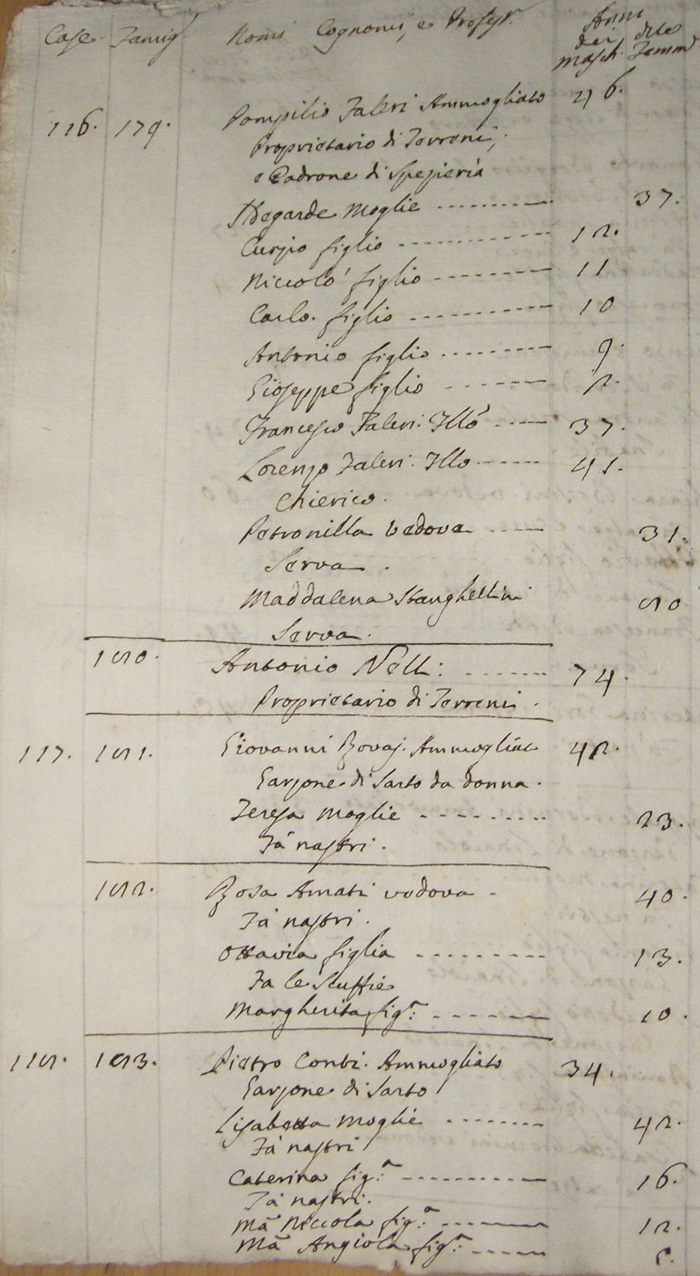 Case. Famig. Nomi Cognomi, e Profess. Anni dei masch. delle Femm.
116. 179. Pompilio Faleri Ammogliato 46.
Proprietario di Terreni,
e Padrone di Spezieria
Ildegarde Moglie 37.
Curzio figlio 12.
Niccolò figlio 11
Carlo. figlio 10
Antonio figlio 9.
Gioseppe figlio 2.
Francesco Faleri. Fllo 37.
Lorenzo Faleri. Fllo 41.
Chierico.
Petronilla Vedova 31.
Serva.
Maddalena Stanghellini 80
Serva.
180. Antonio Nelli: 74.
Proprietario di Terreni.
117. 181. Giovanni Ammogliat 42.
Garzone di Sarto da donna.
Teresa Moglie 23.
Fà nastri.
182. Rosa Amati vedova 40.
Fà nastri.
Ottavia figlia 13.
Fa le Scuffie
Margherita fig.ª 10.
118. 183. Pietro Conti. Ammogliato 34.
Garzone di Sarto
Lisabetta Moglie 42.
Fà nastri
Caterina fig.ª 16.
Fà nastri.
Mª Niccola fig.ª 12.
Mª Angiola fig.ª